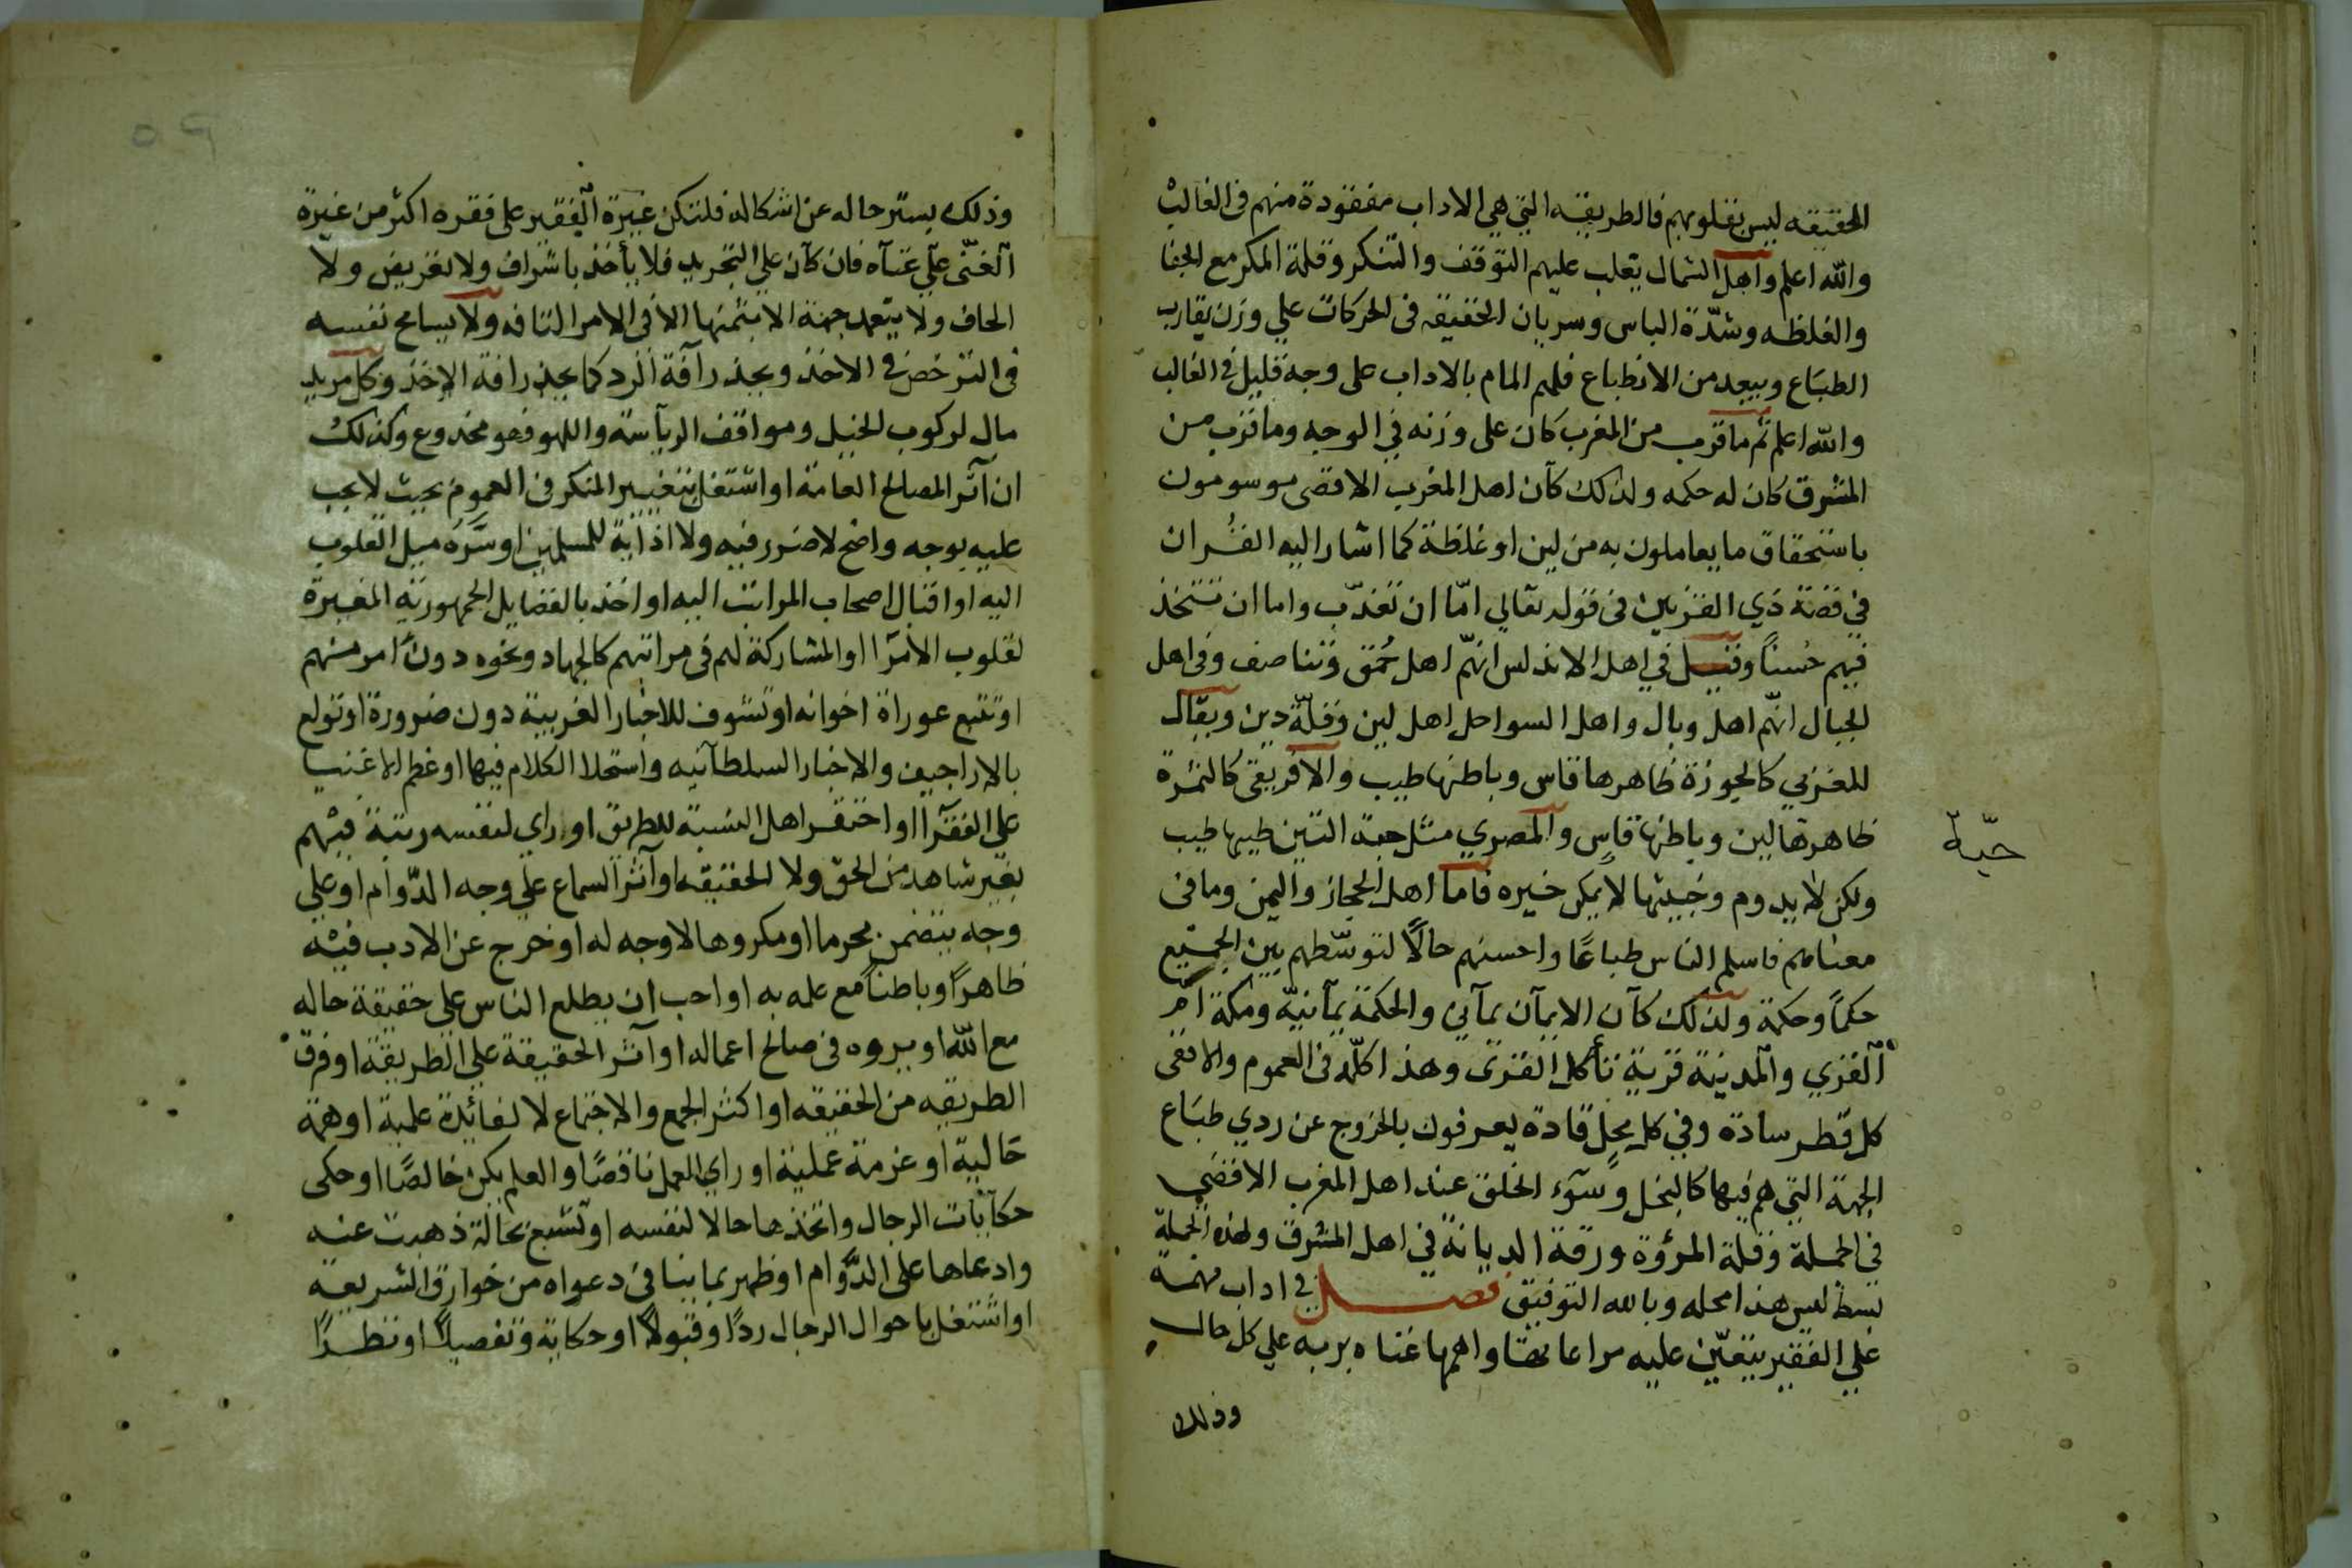 الحقيقه ليس بقلوبهم فالطريقه التي هي الاداب مفقودة منهم في الغالب
والله اعلم واهل الشمال يغلب عليهم التوقف والتنكر وقلة المكر مع الجفا
والغلظه وشدّة الباس وسريان الحقيقه في الحركات علي وزن يقارب
الطبَاع ويبعد من الانطباع فلهم المام بالاداب على وجه قليل في الغالب
والله اعلم ثم ما قرب من المغرب كان على وزنه في الوجه وما قرب من
المشرق كان له حكمه ولذلك كآن اهل المغرب الاقصى موسومون
باستحقاق ما يعاملون به من لين او غلظة كما اشار اليه القُران
في قصة ذي القرنين في قوله تعالي امّا ان تعذّب واما ان تتخذ
فيهم حُسناً وقيل في اهل الاندلس انهّم اهل حُمق وتناصف وفي اهل
الجبال انهّم اهل وبال واهل السواحل اهل لين وقلّة دين ويقال
للمغربي كالجوزة ظاهرها قاس وباطنها طيب والافريقي كالتمرة
ظاهرها لين وباطنها قاسٍ والمصري مثل جبة التين طيبها طيب
حبّة
ولكن لا يدوم وخبيثها لا يمكن خيره فاما اهل الحجاز واليمن وما في
معناهم فاسلم الناس طباعًا واحسنهم حالًا لتوسّطهم بين الجميع
حكمًا وحكمة ولذلك كآن الايمآن يمآني والحكمة يمآنيّة ومكة ام
القري والمدينة قرية تأكل القرى وهذا كلّه في العموم والا ففى
كل قطر سادة وفي كل محل قادة يعرفون بالخروج عن ردي طبَاع
الجهة التي هم فيها كالبخل وسَوء الخلق عند اهل المغرب الاقصي
في الجملة وقلة المرؤة ورقة الديانة في اهل المشرق ولهذه الجملة
بسط ليس هذا محله وبالله التوفيق فصل في اداب مهمه
علي الفقير يتعيّن عليه مراعاتها واهمها غناه بربه علي كل حال
وذلك
وذلك بستر حاله عن اشكاله فلتكن غيرة الفقير على فقره اكثر من غيرة
الغنّى علي غنآه فان كآن علي التجريد فلا يأخذ باشراف ولا تعريض ولا
الحاف ولا يتعهد جهة الا بثمنها الا في الامر التافه ولا يسامح نفسه
في الترخص في الاخذ ويحذر آفة الرد كما يحذر افة الاخذ وكل مريد
مال لركوب الخيل ومواقف الرياسة واللهو فهو مخدوع وكذلك
ان آثر المصالح العامة او اشتغل بتغيير المنكر في العموم بحيث لا يجب
عليه بوجه واضح لا ضرر فيه ولا اذاية للمسلمين او سَرَّه ميل القلوب
اليه او اقبال اصحاب المراتب اليه او اخذ بالفضايل الجمهورية المغيرة
لقلوب الامرآ او المشاركة لهم في مراتبهم كالجهاد ونحوه دون امر منهم
او تتبع عوراة اخوانه او تشوف للاخبار الغريبة دون ضرورة او تولع
بالاراجيف والاخبار السلطآنيه واستحلا الكلام فيها او عظم الاغنيا
علي الفقرآ او احتقر اهل النسبة للطريق او راي لنفسه رتبة فيهم
بغير شاهد من الحق ولا الحقيقه او آثر السماع علي وجه الدّوام او علي
وجه يتضمن محرما او مكروها لا وجه له او خرج عن الادب فيه
ظاهرًا وباطنًا مع علمه به او احب ان يطلع الناس علي حقيقة حاله
مع الله او يروه في صالح اعماله او آثر الحقيقة علي الطريقة او فرق
الطريقه من الحقيقه او اكثر الجمع والاجتماع لا لفائدة علمية او همة
حَالية او عزمة عملية او راي العمل ناقصًا والعلم يكن خالصًا او حكى
حكآيات الرجال واتخذها حالا لنفسه او تشبع بحالة ذهبت عنه
وادعاها على الدّوام او ظهر بما ينافي دعواه من خوارق الشريعه
او اشتغل باحوال الرجال ردًا وقبولًا او حكاية وتفصيلاً او نظرًا